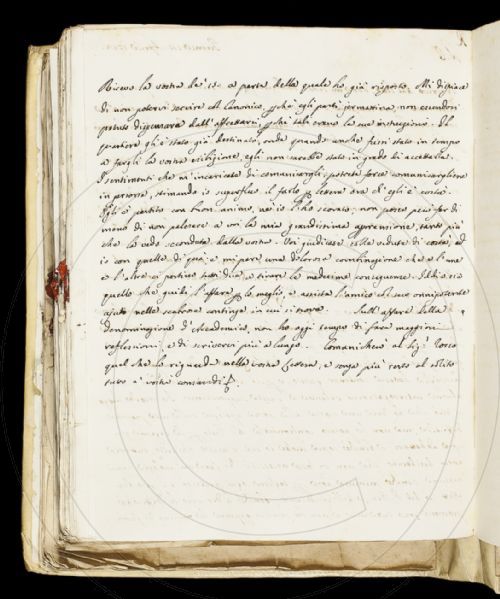 Ricevo la vostra de' 13. a parte della quale ho già risposto. Mi dispiace
di non potervi servire col Canonico, perchè egli partì jermattina, non essendosi
potuto dispensare dall'affrettarsi, perchè tali erano le sue instruzioni. Il
quartiere gli è stato già destinato, onde quando anche fussi stato in tempo
a fargli la vostra esibizione, egli non sarebbe stato in grado di accettarla.
I sentimenti che m'incaricate di comunicargli, poteste forse comunicarglieli
in persona, stimando io superfluo il farlo per lettera ora ch'egli è costà.
Egli è partito con buon animo, nè io l'ho scorato; non posso però far di
meno di non palesare a voi la mia grandissima apprensione, tanto più
che la vedo secondata dalla vostra. Voi giudicate colle vedute di costà, ed
io con quelle di quà, e mi pare una dolorosa combinazione che e l'une
e l'altre ci portino tutti due a tirare le medesime conseguenze. Iddio sia
quello che guidi l'affare per lo meglio, e assista l'amico col suo onnipotente
ajuto nello scabroso in cui si trova. Sull'affare della
denominazione d'Accademico, non ho oggi tempo di fare maggiori
reflessioni, e di scrivervi più a lungo. Comunicherò al Sig.r
quel che lo riguarda nella vostra lettera, e senza più resto al solito
tutto a' vostri comandi